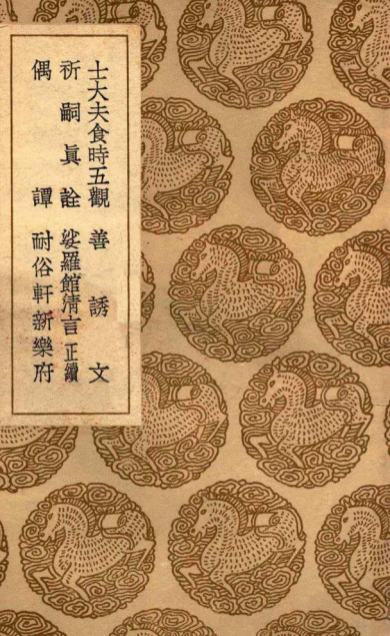 士大夫食時五觀 善誘文
祈嗣眞詮 娑羅館淸言正續
偶譚 耐俗軒新樂府